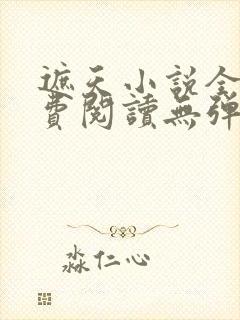 遮天小說全
費閱讀無彈
淼仁心